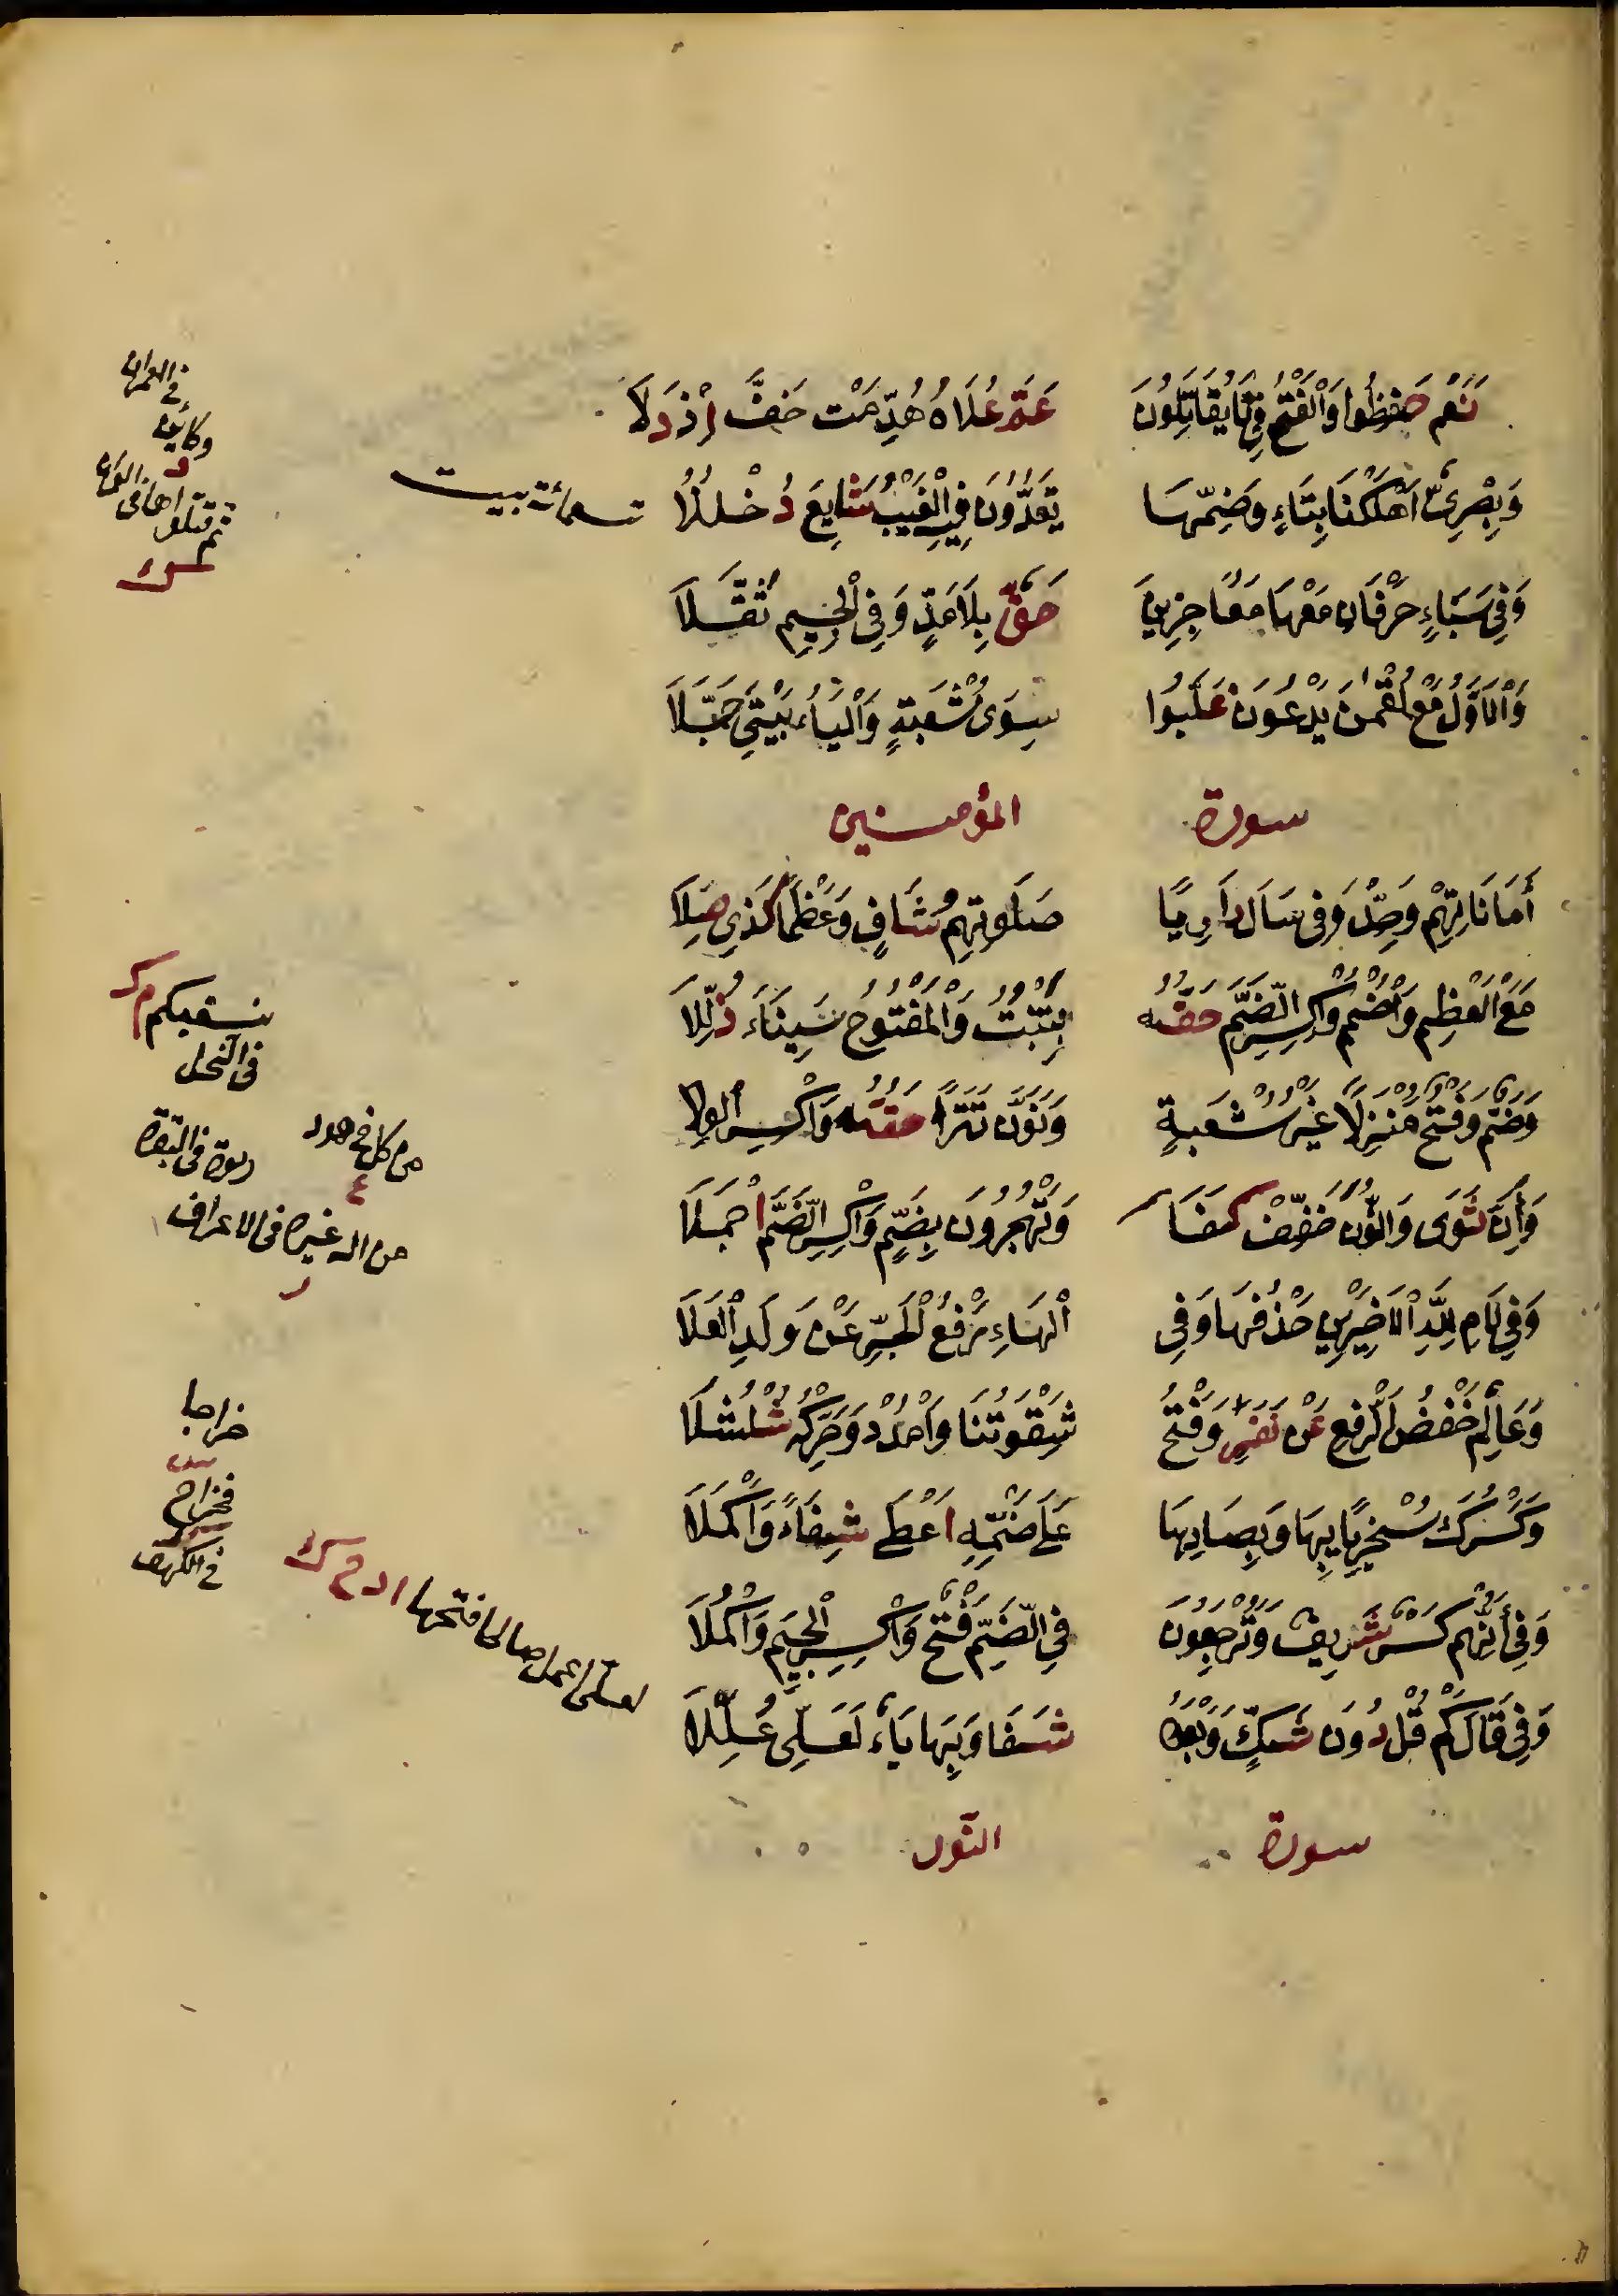 نَعَمْ حَفِظُوا وَالْفَتْحُ فِي تَا يُقَاتِلُونَ عَمَّ عُلَاهُ هُدِّمَتْ خَفَّ إِذْ دَلَا
وَبَصْرِيٌّ أَهْلَكْنَا بِتَاءٍ وَضَمِّهَا يَعُدُّونَ فِيهِ الْغَيْبُ شَايَعَ دُخْلُلَا
تسعمائة بيت
وَفِي سَبَاءٍ حَرْفَانِ مَعْهَا مُعَاجِزِينَ حَقٌّ بِلَا مَدٍّ وَفِي الْجِيمِ ثُقِّلَا
وَالْاَوَّلُ مَعْ لُقْمٰنَ يَدْعُونَ غَلَّبُوا سِوَى شُعْبَةٍ وَالْيَاءُ بَيْتِيَ جَمَّلَا
سورة المؤمنين
أَمَانَاتِهِمْ وَحِّدْ وَفِي سَالَ دَارِيًا صَلَوتِهِمُ شَافٍ وَعَظْمًا كَذِي صِلَا
مَعَ الْعَظْمِ وَاضْمُمْ وَاكْسِرِ الضَّمَّ حَقُّهُ بِتَنْبُتُ وَالْمَفْتُوحُ سِينَاءَ ذُلِّلَا
وَضَمٌّ وَفَتْحٌ مَنْزِلًا غَيْرُ شُعْبَةٍ وَنَوَّنَ تَتْرًا حَقُّهُ وَاكْسِرِ الْوِلَا
وَأَنَّ ثَوَى وَالنُّونَ خَفِّفْ كَفَا وَتُهْجِرُونَ بِضَمٍّ وَاكْسِرِ الضَّمَّ اَجْمَلَا
وَفِي لَامِ لِلّٰهِ الْاَخِيرَيْنِ حَذْفُهَا وَفِي الْهَاءِ رَفْعُ الْجَرِّ عَنْ وَلَدِ الْعَلَا
وَعَالِمُ خَفْضُ الرَّفْعِ عَنْ نَفَرٍ وَفَتْحُ شِقْوَتُنَا وَامْدُدْ وَحَرِّكْهُ شُلْشُلَا
وَكَسْرُكَ سُخْرِيًّا بِهَا وَبِصَادِهَا عَلَى ضَمِّهِ اَعْطَى شِفَاءً وَاَكْمَلَا
وَفِي أَنَّهُمْ كَسْرٌ شَرِيفٌ وَتُرْجَعُونَ فِي الضَّمِّ فَتْحٌ وَاكْسِرِ الْجِيمَ وَاكْمُلَا
وَفِي قَالَ كَمْ قُلْ دُونَ شَكٍّ وَبَعْدَهُ شَفَا وَبِهَا يَاءٌ لَعَلِّي عُلِّلَا
سورة النّور
وكاين
نسقيكم م ك
في النحل
من كل في هود
ع
ربوة في البقرة
من اله غيره في الاعراف
ر
خراجا
فخراج
في الكهف
لعلي اعمل صالحا فتحها ا د ح ك